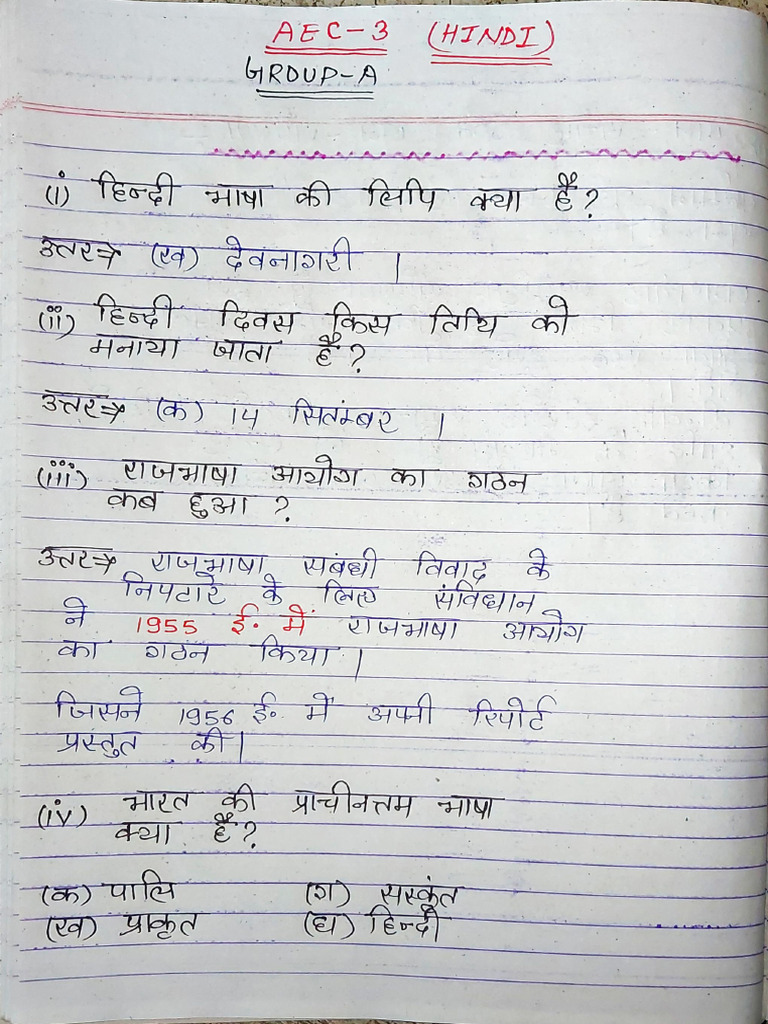 AEC-3 (HINDI)
GROUP-A
(i) हिन्दी भाषा की लिपि क्या है?
उत्तर⇒ (ख) देवनागरी ।
(ii) हिन्दी दिवस किस तिथि को
मनाया जाता है?
उत्तर⇒ (क) 14 सितंम्बर ।
(iii) राजभाषा आयोग का गठन
कब हुआ ?
उत्तर⇒ राजभाषा संबंधी विवाद के
निपटारे के लिए संविधान
ने 1955 ई॰ में राजभाषा आयोग
का गठन किया ।
जिसने 1956 ई॰ में अपनी रिपोर्ट
प्रस्तुत की।
(iv) भारत की प्राचीनत्तम भाषा
क्या है?
(क) पालि (ग) सस्कृंत
(ख) प्राकृत (घ) हिन्दी